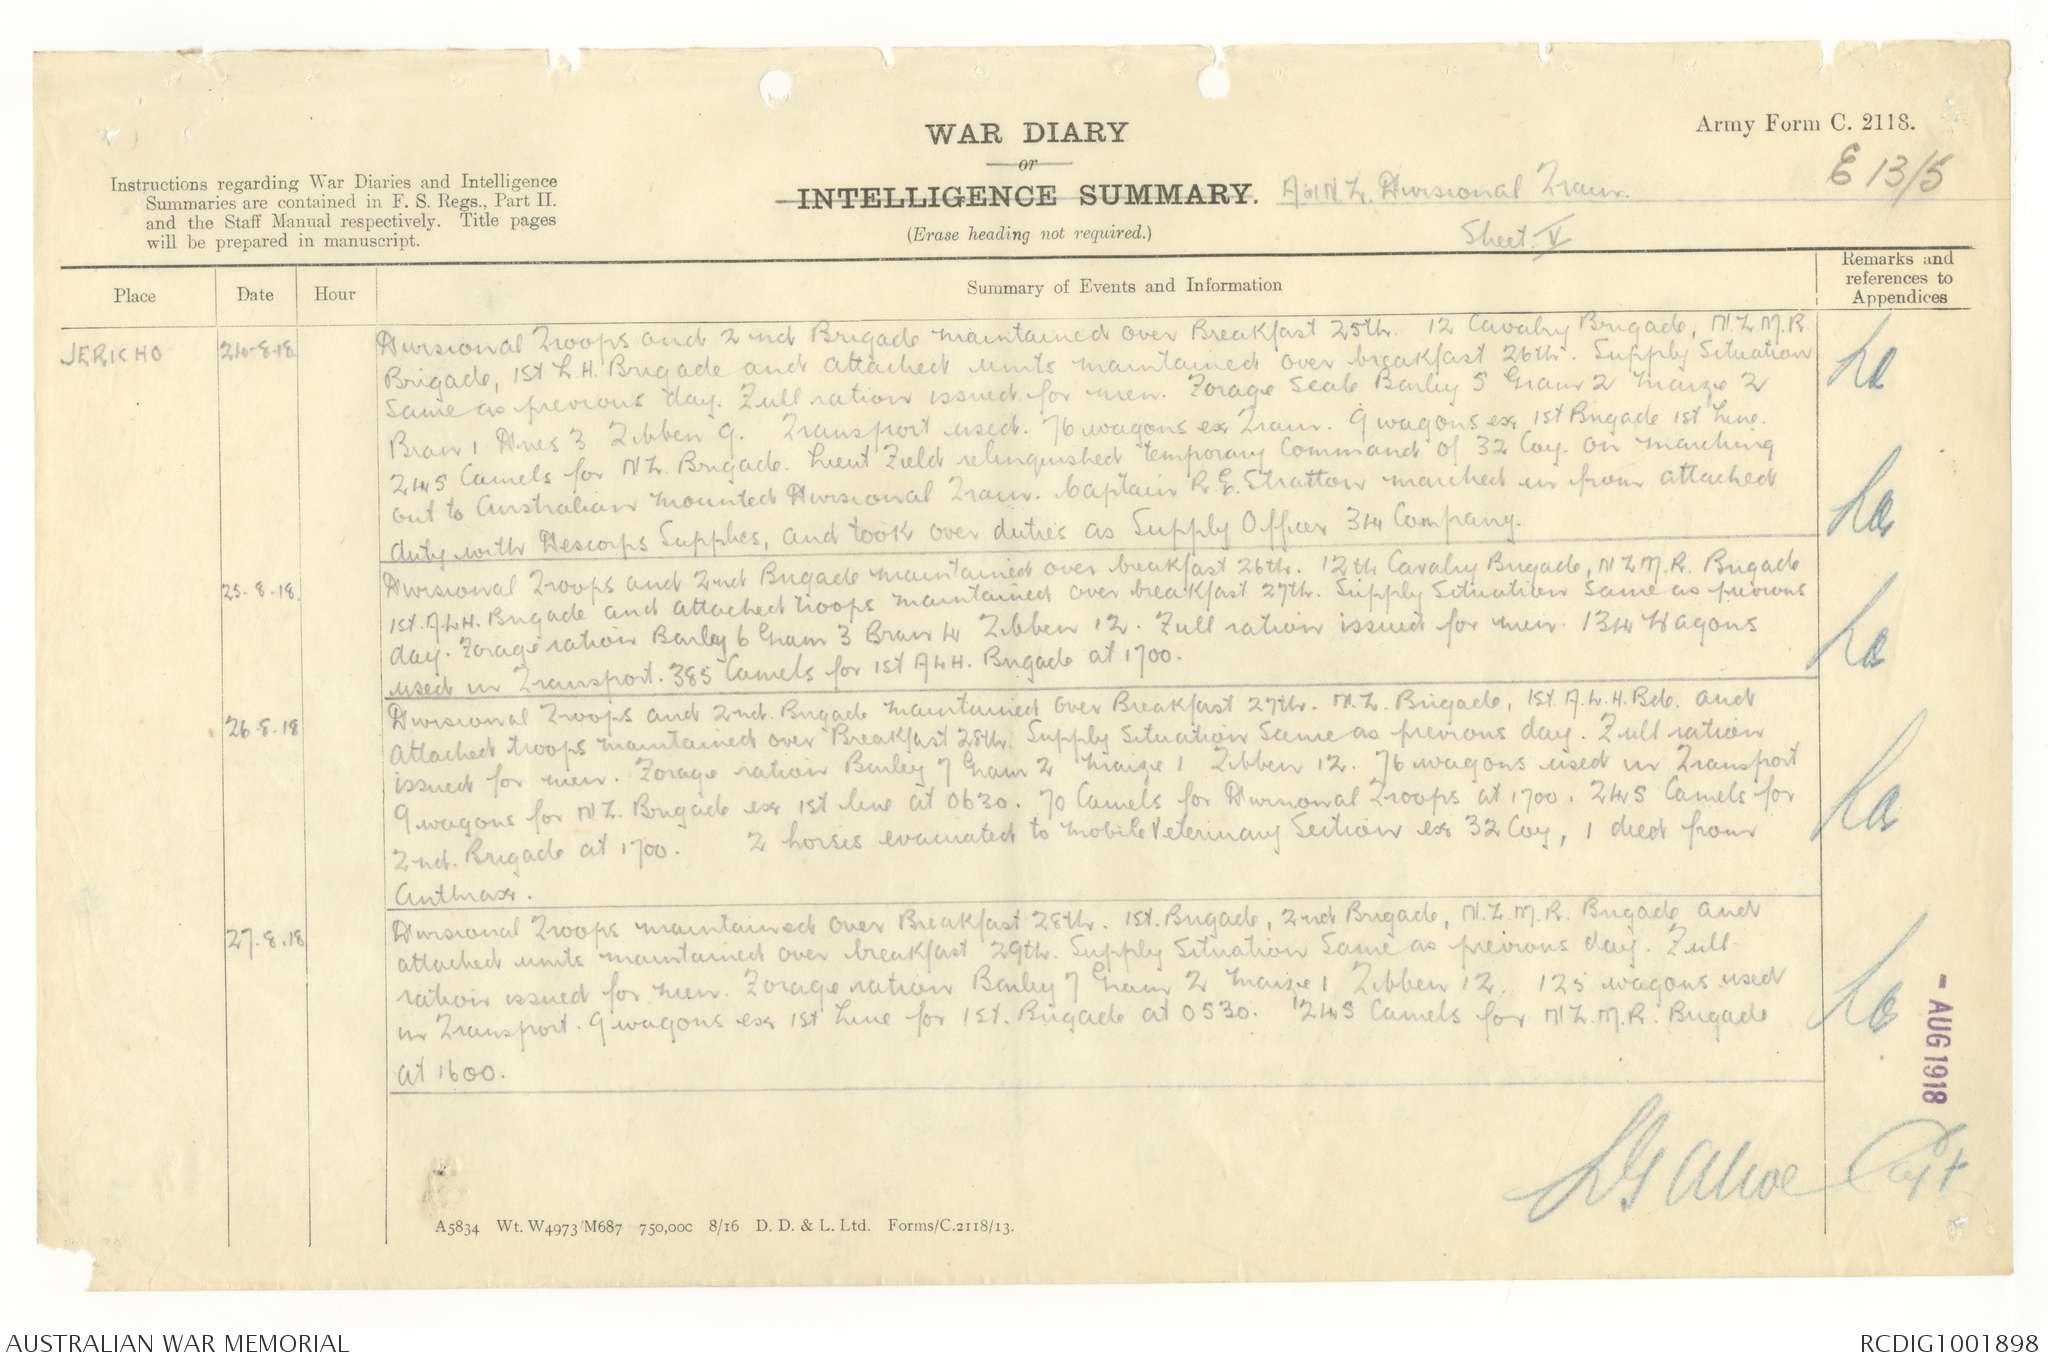 WAR DIARY
or
INTELLIGENCE SUMMARY.
(Erase heading not required.)
Army Form C. 2118.
E 13/5
Instructions regarding War Diaries and Intelligence
Summaries are contained in F. S. Regs., Part II.
and the Staff Manual respectively. Title pages
will be prepared in manuscript.
A & N Z. Divisional Train.
Sheet. V
Place
Date
Hour
Summary of Events and Information
Remarks and
references to
Appendices
JERICHO
24-8-18
Divisional Troops and 2nd Brigade maintained over Breakfast 25th. 12 Cavalry Brigade, N.Z.M.R.
Brigade, 1st L.H. Brigade and attached units maintained over breakfast 26th. Supply Situation
Same as previous day. Full ration issued for men. Forage Scale Barley 5 Gram 2 Maize 2
Bran 1 Dries 3 Tibben 9. Transport used. 76 wagons ex Train. 9 wagons ex 1st Brigade 1st Line.
245 Camels for N.Z. Brigade. Lieut Field relinquished temporary Command of 32 Coy. on marching
out to Australian Mounted Divisional Train. Captain R.G. Stratton marched in from attached
duty with Descorps Supplies, and took over duties as Supply Officer 34 Company.
25-8-18.
Divisional Troops and 2nd Brigade maintained over breakfast 26th. 12th Cavalry Brigade, N.Z.M.R. Brigade
1st. A.L.H. Brigade and attached troops maintained over breakfast 27th. Supply Situation same as previous
day. Forage ration Barley 6 Gram 3 Bran 4 Tibben 12. Full ration issued for men. 134 Wagons
used in Transport. 385 Camels for 1st A.L.H. Brigade at 1700.
26-8-18
Divisional Troops and 2nd. Brigade maintained over Breakfast 27th. N.Z. Brigade, 1st. A.L.H. Bde. and
attached troops maintained over Breakfast 28th. Supply Situation Same as previous day. Full ration
issued for men. Forage ration Barley 7 Gram 2 Maize 1 Tibben 12. 76 wagons used in Transport
9 wagons for N.Z. Brigade ex 1st line at 0630. 70 Camels for Divisional Troops at 1700. 245 Camels for
2nd. Brigade at 1700. 2 horses evacuated to Mobile Veterinary Section ex 32 Coy, 1 died from
Anthrax.
27.8.18
Divisional Troops maintained over Breakfast 28th. 1st. Brigade, 2nd Brigade, N.Z.M.R. Brigade and
attached units maintained over breakfast 29th. Supply Situation Same as previous day. Full
ration issued for men. Forage ration Barley 7 Gram 2 Maize 1 Tibben 12. 125 wagons used
in Transport. 9 wagons ex 1st Line for 1st. Brigade at 0530. 245 Camels for N.Z.M.R. Brigade
at 1600.
- AUG 1918
Capt
A5834 Wt. W4973/M687 750,000 8/16 D. D. & L. Ltd. Forms/C.2118/13.
AUSTRALIAN WAR MEMORIAL
RCDIG1001898